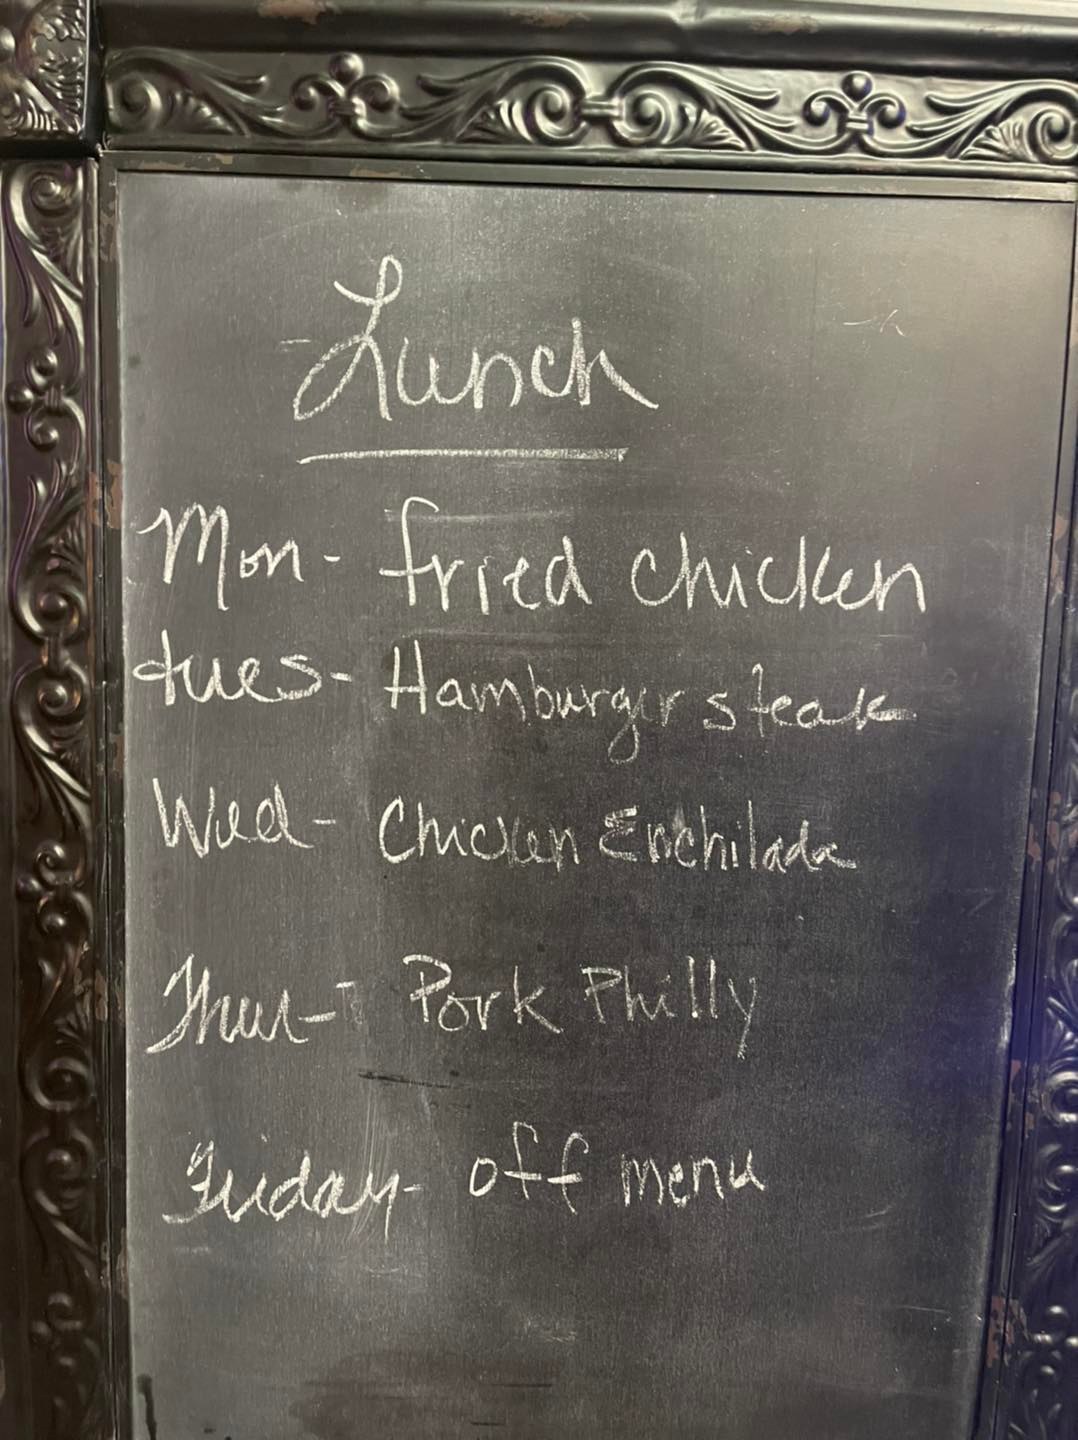 Lunch
Mon- fried chicken
tues- Hamburger steak
Wed- Chicken Enchilada
Thur- Pork Philly
Friday- off menu